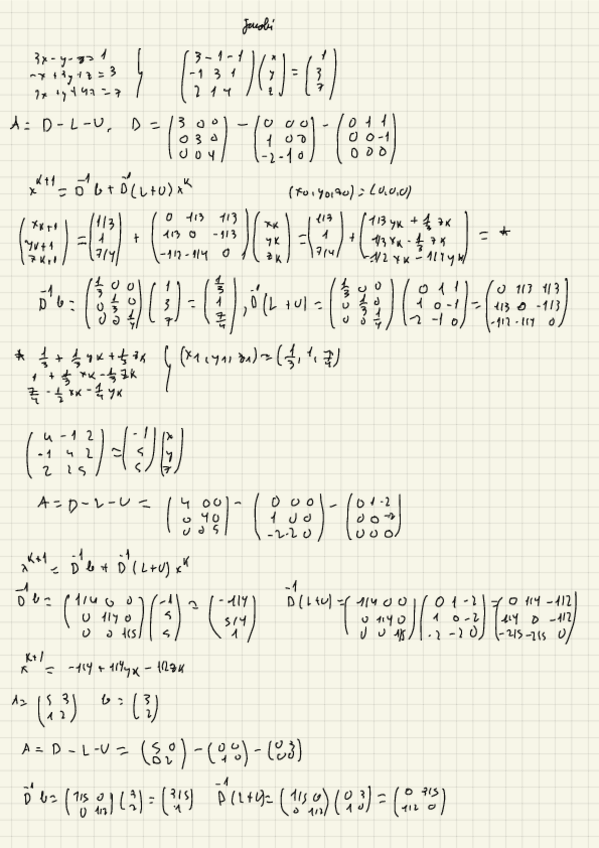 Jacobi
3x-y-z=1
-x+3y+z=3
2x+y+4z=7
(3 -1 -1
-1 3 1
2 1 4) (x
y
z) = (1
3
7)
A = D-L-U, D = (3 0 0
0 3 0
0 0 4) - (0 0 0
1 0 0
-2 -1 0) - (0 1 1
0 0 -1
0 0 0)
x^{k+1} = D^{-1} b + D^{-1}(L+U) x^k (x0, y0, z0) = (0,0,0)
(xk+1
yk+1
zk+1) = (1/3
1
7/4) + (0 1/3 1/3
1/3 0 -1/3
-1/2 -1/4 0) (xk
yk
zk) = (1/3
1
7/4) + (1/3 yk + 1/3 zk
1/3 xk - 1/3 zk
-1/2 xk - 1/4 yk) = *
D^{-1} b = (1/3 0 0
0 1/3 0
0 0 1/4) (1
3
7) = (1/3
1
7/4), D^{-1}(L+U) = (1/3 0 0
0 1/3 0
0 0 1/4) (0 1 1
1 0 -1
-2 -1 0) = (0 1/3 1/3
1/3 0 -1/3
-1/2 -1/4 0)
* 1/3 + 1/3 yk + 1/3 zk
1 + 1/3 xk - 1/3 zk
7/4 - 1/2 xk - 1/4 yk
(x1, y1, z1) = (1/3, 1, 7/4)
(4 -1 2
-1 4 2
2 2 5) = (-1
5
5) (x
y
z)
A = D-L-U = (4 0 0
0 4 0
0 0 5) - (0 0 0
1 0 0
-2 -2 0) - (0 1 -2
0 0 -2
0 0 0)
x^{k+1} = D^{-1} b + D^{-1}(L+U) x^k
D^{-1} b = (1/4 0 0
0 1/4 0
0 0 1/5) (-1
5
5) = (-1/4
5/4
1) D^{-1}(L+U) = (1/4 0 0
0 1/4 0
0 0 1/5) (0 1 -2
1 0 -2
-2 -2 0) = (0 1/4 -1/2
1/4 0 -1/2
-2/5 -2/5 0)
x^{k+1} = -1/4 + 1/4 yk - 1/2 zk
A = (5 3
1 2) b = (3
2)
A = D-L-U = (5 0
0 2) - (0 0
1 0) - (0 3
0 0)
D^{-1} b = (1/5 0
0 1/2) (3
2) = (3/5
1) D^{-1}(L+U) = (1/5 0
0 1/2) (0 3
1 0) = (0 3/5
1/2 0)